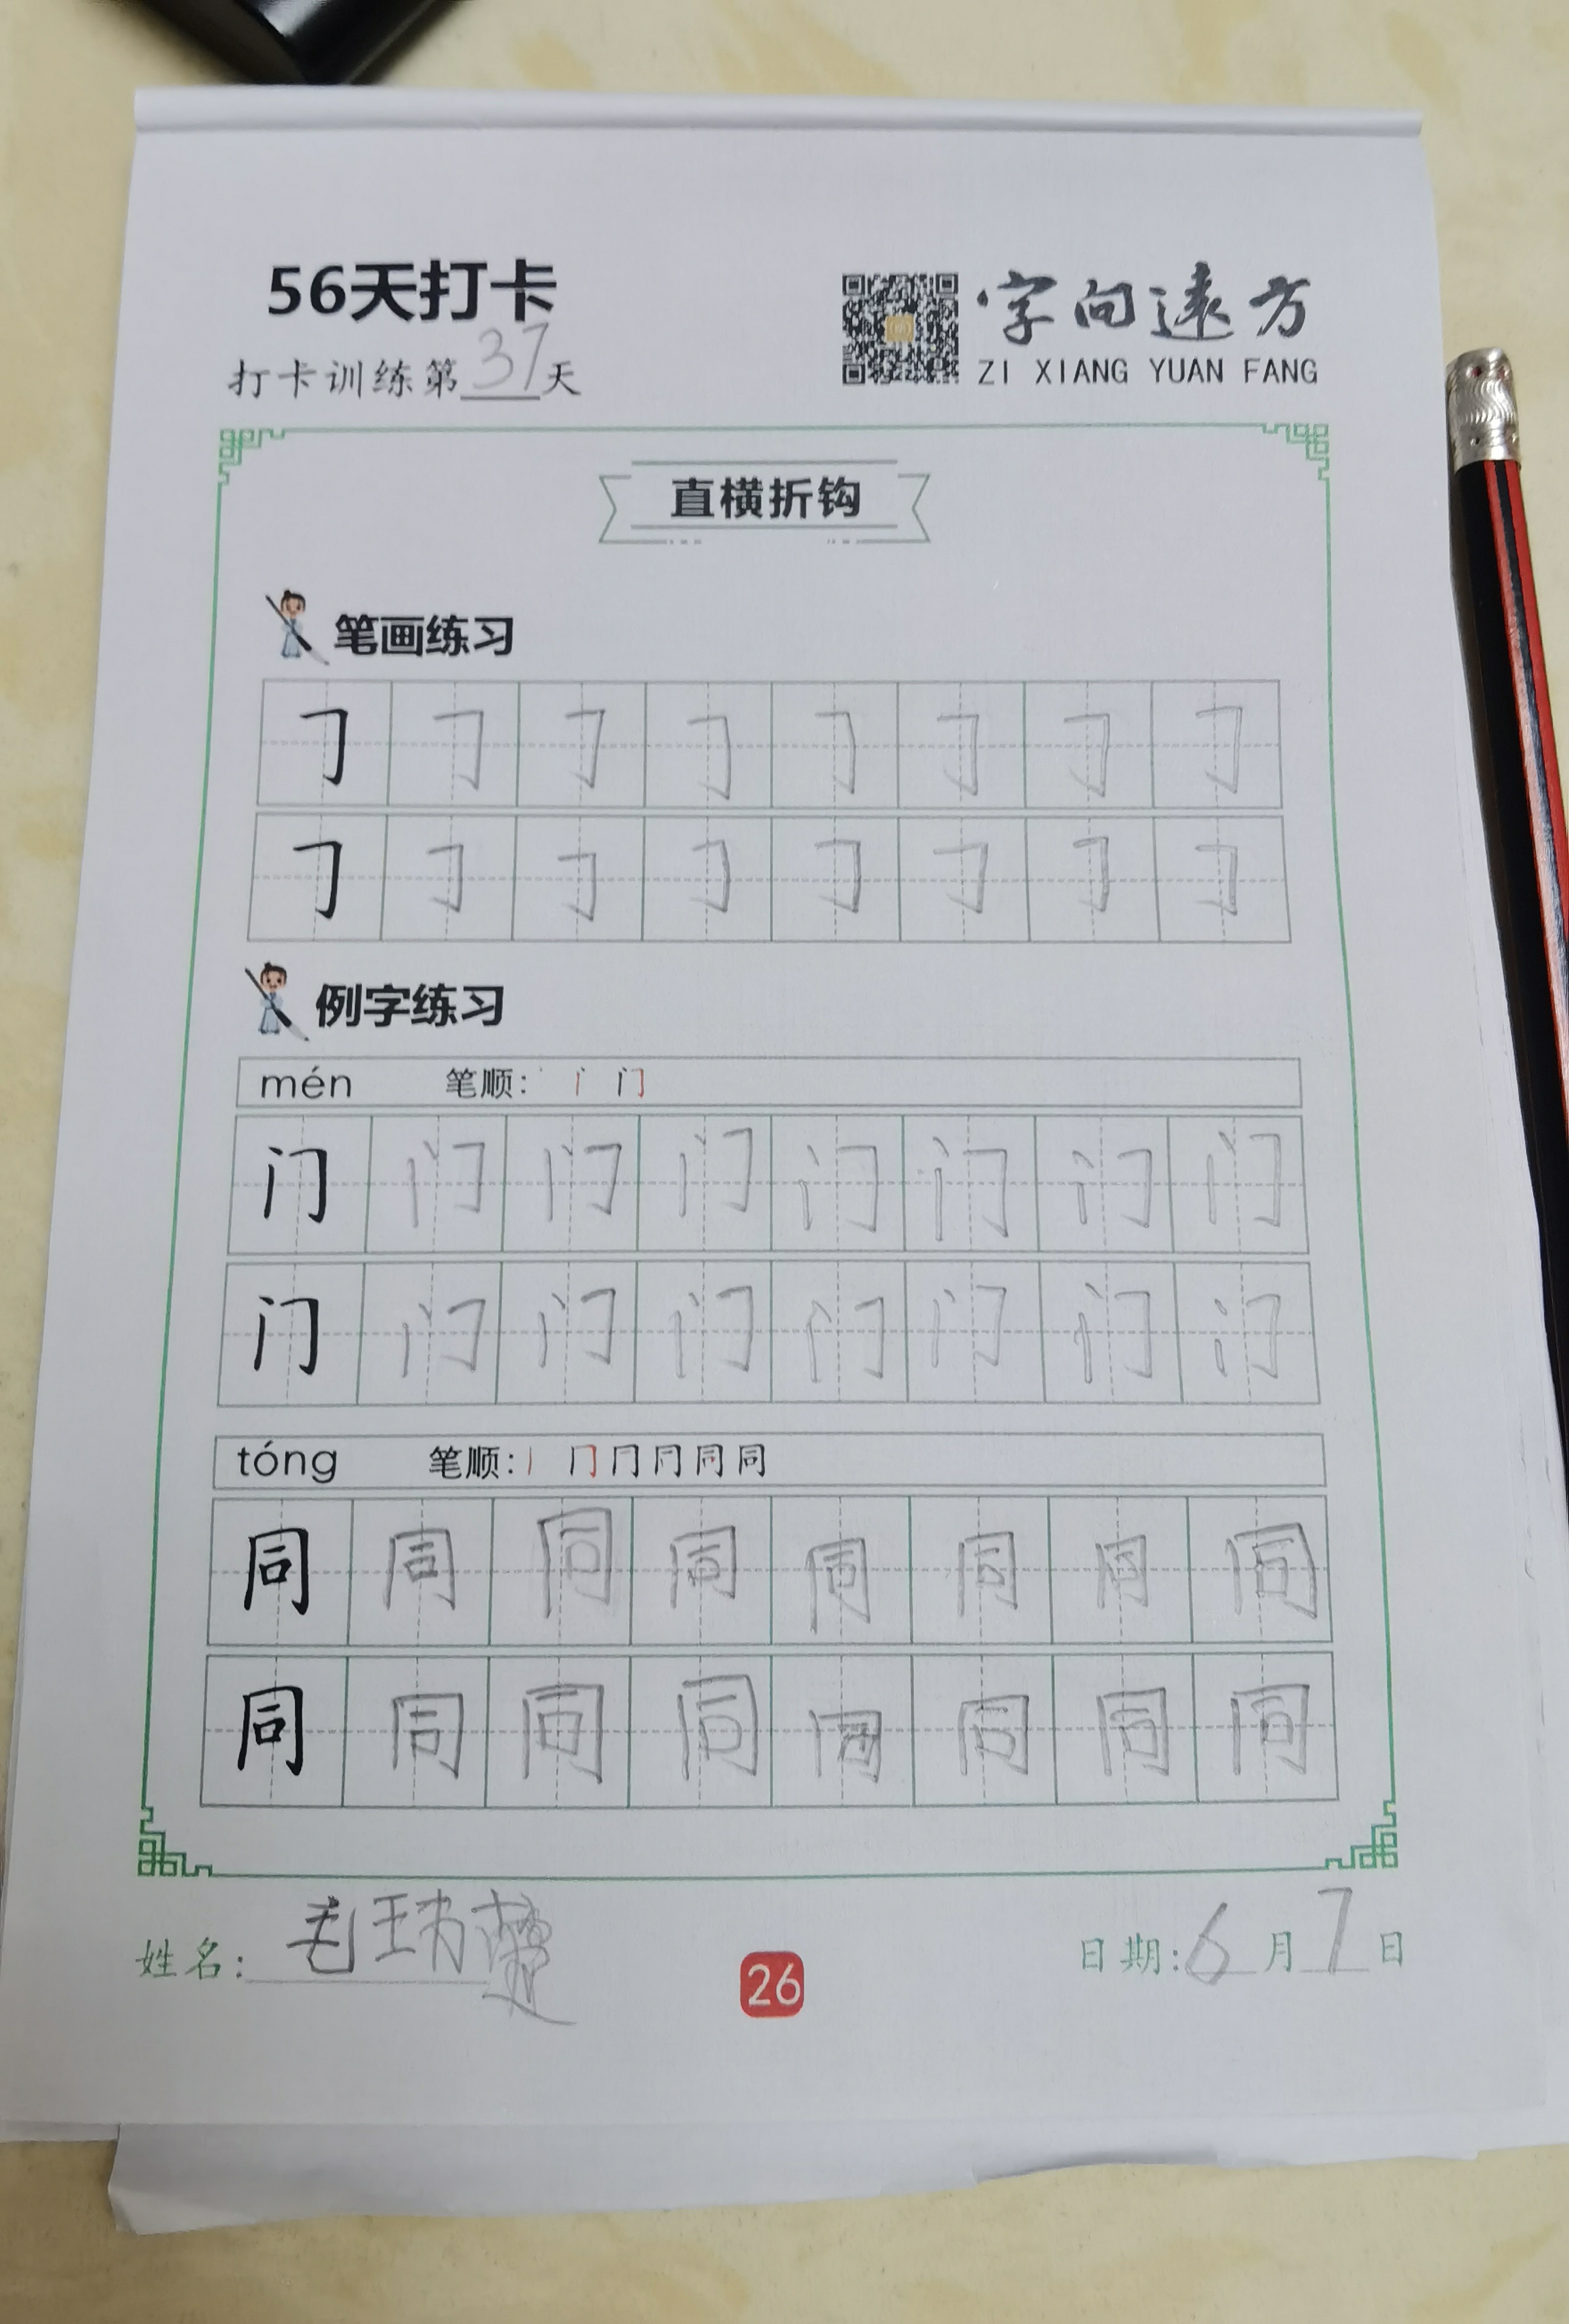 56天打卡
打卡训练第37天
字向遠方
ZI XIANG YUAN FANG
直横折钩
笔画练习
𠃌 𠃌 𠃌 𠃌 𠃌 𠃌 𠃌 𠃌
𠃌 𠃌 𠃌 𠃌 𠃌 𠃌 𠃌 𠃌
例字练习
mén 笔顺: 丶 门
门 门 门 门 门 门 门 门
门 门 门 门 门 门 门 门
tóng 笔顺: 丨 冂 同 同
同 同 同 同 同 同 同 同
同 同 同 同 同 同 同 同
姓名: 毛玮
26
日期: 6月7日